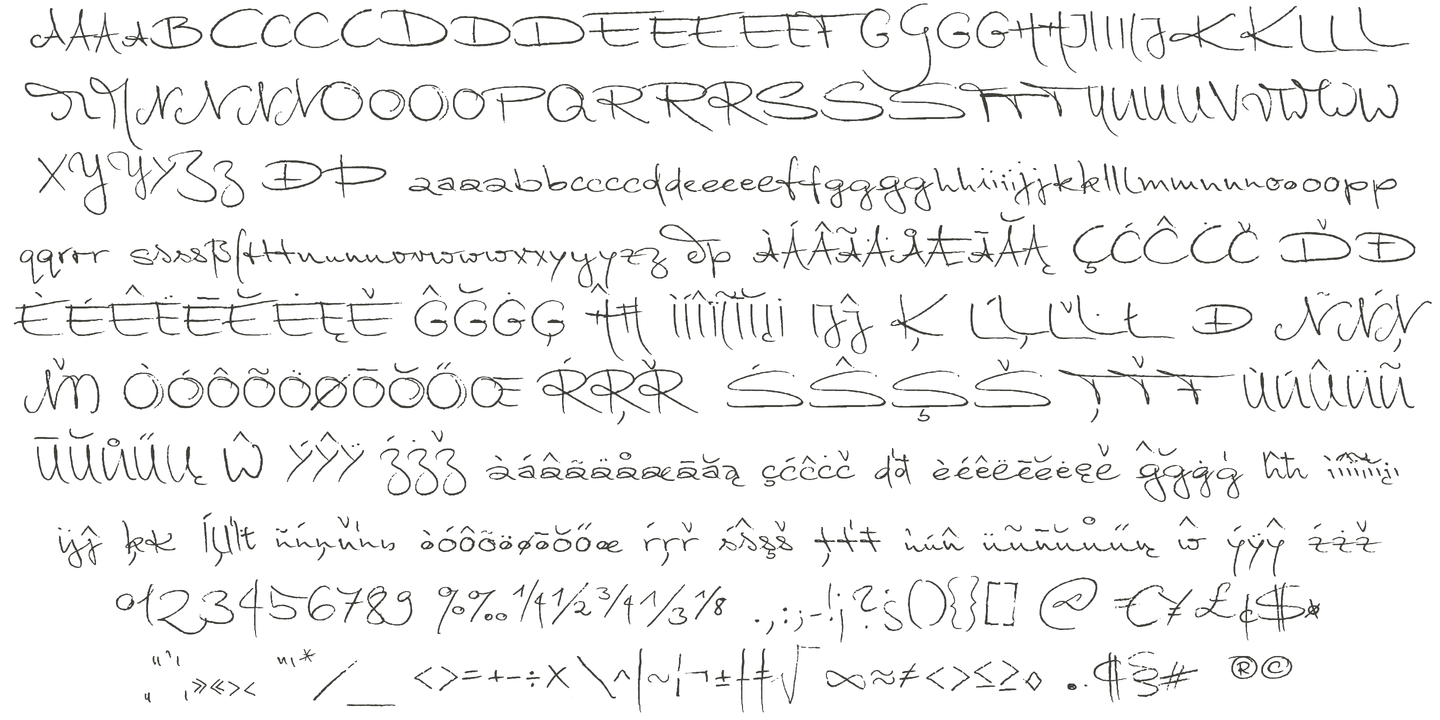 AAAABCCCCDDDDEEEEEFGGGGHHJIIIIJKKKLLL
MMNNNNOOOOPQRRRSSSTTTUUUUUVVWWWW
XYYYZZ ÐÞ aaaabbccccddeeeeeffgggghhiiiijjkkklllmmnnnnoooopp
qqrrr ssssßſtttnuuuuvvwwwwxxyyyyzzz ðþ ÀÁÂÃÄÅÆĀĂĄ ÇĆĈĊČ ĎĐ
ÈÉÊËĒĔĖĘĚ ĜĞĠĢ ĤĦ ÌÍÎÏĨĪĬĮİ IJĴ Ķ ĹĻĽĿŁ Đ ÑŃŅ
ŇŊ ÒÓÔÕÖØŌŎŐŒ ŔŖŘ ŚŜŞŠ ŢŤŦ ÙÚÛÜŨ
ŪŬŮŰŲ Ŵ ÝŶŸ ŹŻŽ àáâãäåæāăą çćĉċč ďđ èéêëēĕėęě ĝğġģ ĥħ ìíîïĩīĭįı
ijĵ ķĸ ĺļľŀł ñńņňŉŋ òóôõöøōŏőœ ŕŗř śŝşš ţťŧ ùúû üũūŭůűų ŵ ýÿŷ źżž
0123456789 %‰¼½¾⅓⅛ .,:;-!¡?¿(){}[] @ €¥£¢$¤
“”‘’ „ ‚»«›‹ "'* /_ <>=+-÷× \^|~¦¬±†‡√ ∞≈≠<>≤≥◊ •·¶§# ®©